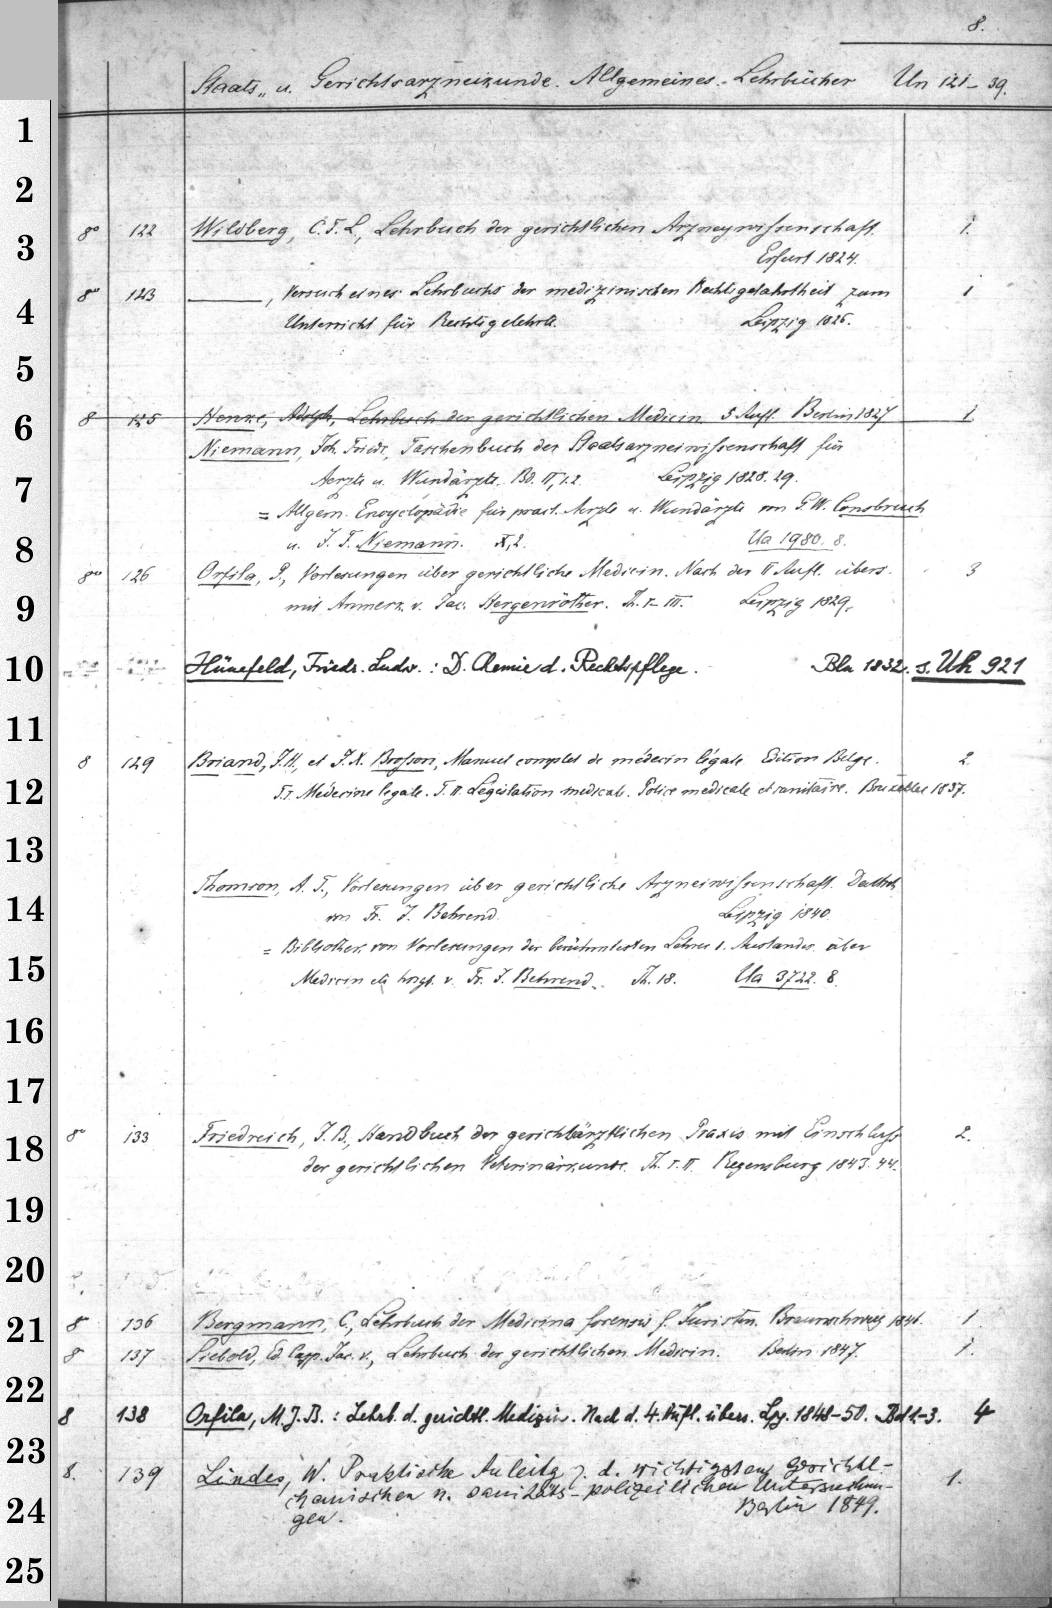 8.
Staats- u. Gerichtsarzneikunde. Allgemeines. Lehrbücher Un 121-39.
1
2
3 8° 122 Wildberg, C. F. L., Lehrbuch der gerichtlichen Arzneywissenschaft. 1.
Erfurt 1824.
8° 123 ———, Versuch eines Lehrbuchs der medizinischen Rechtsgelahrtheit zum 1
4 Unterricht für Rechtsgelehrte. Leipzig 1826.
5
6 8 125 Henke, Adolph, Lehrbuch der gerichtlichen Medicin. 5 Aufl. Berlin 1827. 1.
Niemann, Joh. Friedr., Taschenbuch der Staatsarzneiwissenschaft für
7 Aerzte u. Wundärzte. Bd. II, 1.2. Leipzig 1828.29.
= Allgem. Encyclopädie für pract. Aerzte u. Wundärzte von G. W. Consbruch
8 u. J. F. Niemann. X, 2. Ua 1980. 8.
8° 126 Orfila, P., Vorlesungen über gerichtliche Medicin. Nach der II Aufl. übers. 3
9 mit Anmerk. v. Jac. Hergenröther. Th. I-III. Leipzig 1829.
10 Hünefeld, Friedr. Ludw.: D. Chemie d. Rechtspflege. Bln 1832. s. Uh 921
11
8 129 Briand, J. H., et J. X. Brosson, Manuel complet de médecin légale. Edition Belge. 2
12 T. I. Médecine legale. T. II. Législation médicale. Police medicale et sanitaire. Bruxelles 1837.
13
Thomson, A. T., Vorlesungen über gerichtliche Arzneiwissenschaft. Deutsch
14 von Fr. J. Behrend. Leipzig 1840.
= Bibliothek von Vorlesungen der berühmtesten Lehrer d. Auslandes über
15 Medicin etc hrsg. v. Fr. J. Behrend. Th. 18. Ua 3722. 8.
16
17
18 8° 133 Friedreich, J. B., Handbuch der gerichtsärztlichen Praxis mit Einschluss 2.
der gerichtlichen Veterinärkunde. Th. I. II. Regensburg 1843.44.
19
20
21 8° 136 Bergmann, C., Lehrbuch der Medicina forensis f. Juristen. Braunschweig 1846. 1
8° 137 Siebold, Ed. Casp. Jac. v., Lehrbuch der gerichtlichen Medicin. Berlin 1847. 1.
22 8 138 Orfila, M. J. B.: Lehrb. d. gerichtl. Medizin. Nach d. 4. Aufl. übers. Lpz. 1848-50. Bd 1-3. 4
23 8. 139 Lindes, W. Praktische Anleitg z. d. wichtigsten gerichtl- 1.
chemischen u. sanitäts-polizeilichen Untersuchun-
24 gen. Berlin 1849.
25